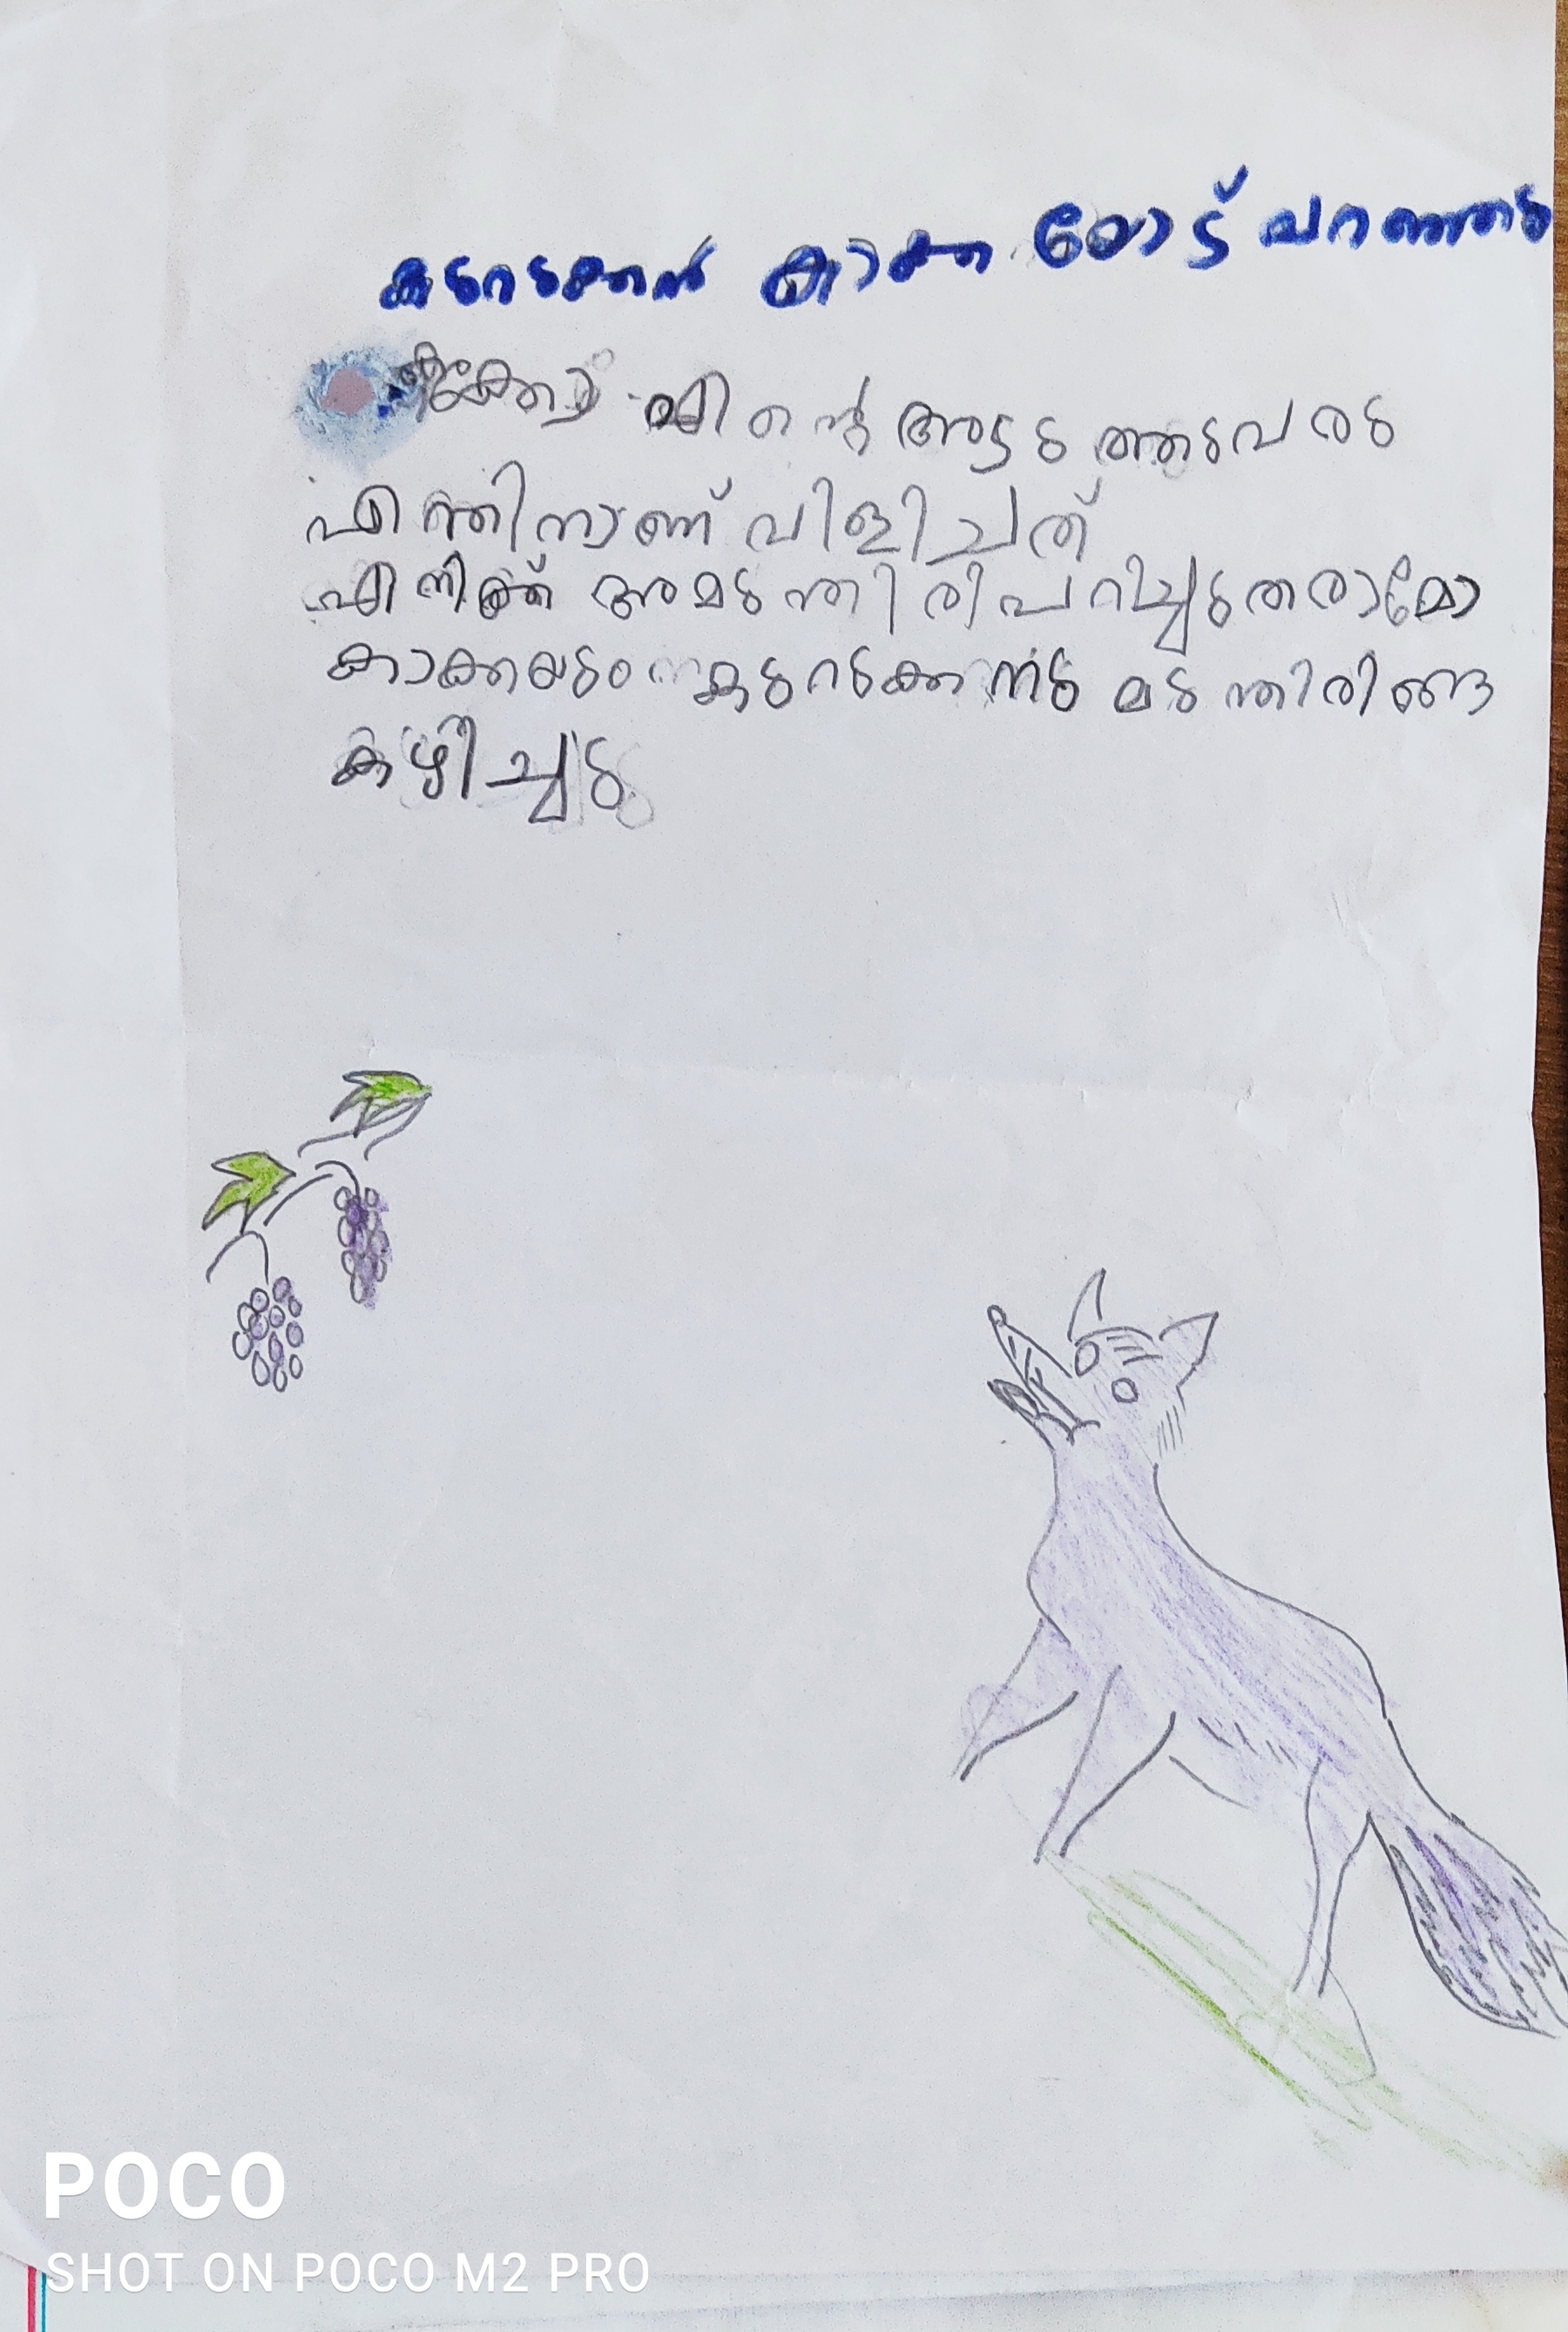 കുറുക്കൻ കാക്കയോട് പറഞ്ഞു
എന്റെ അടുത്തുവരു
എന്തിനാണ് വിളിച്ചത്
എനിക്ക് ആ മുന്തിരി പറിച്ചുതരാമോ
കാക്കയും കുറുക്കനും മുന്തിരിങ്ങ
കഴിച്ചു
POCO
SHOT ON POCO M2 PRO